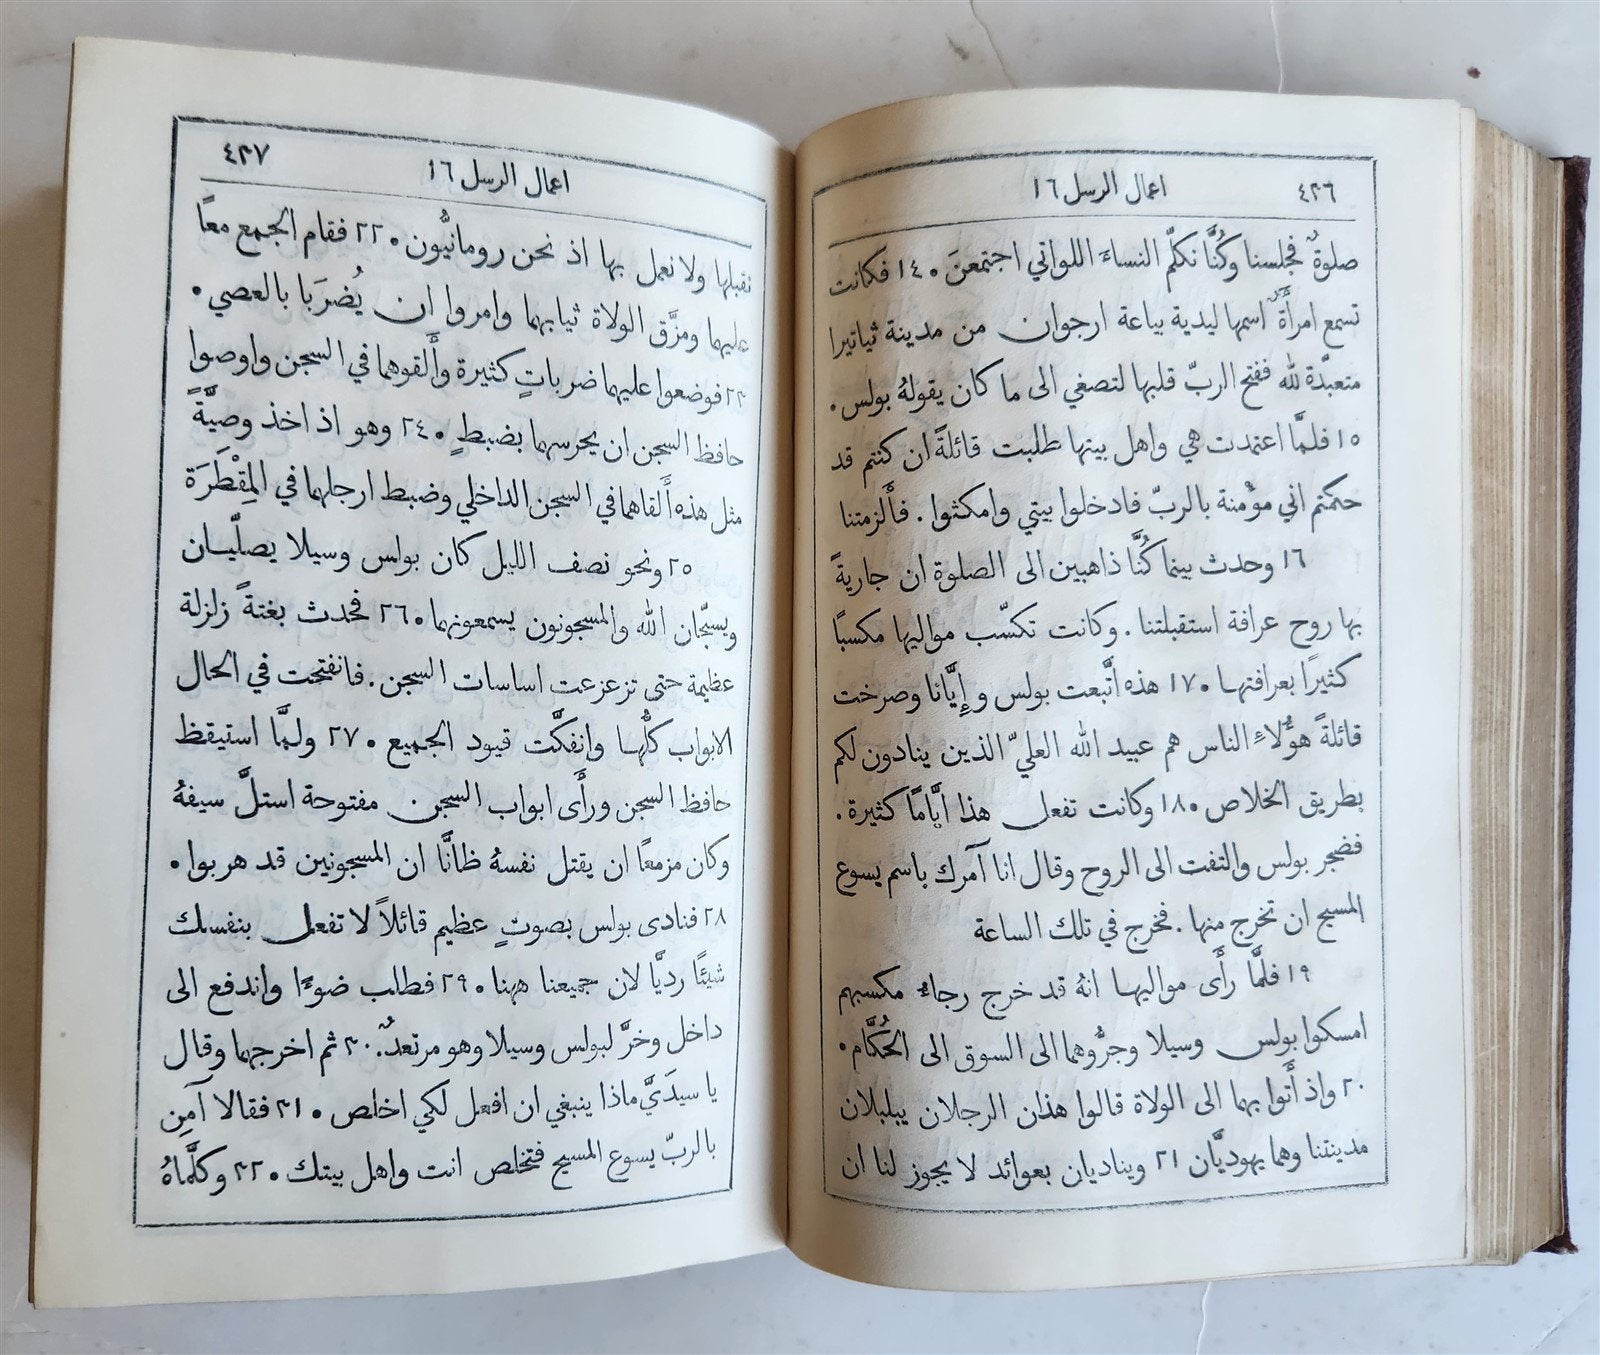 ٤٣٦
اعمال الرسل ١٦
صلوةٌ فجلسنا وكُنَّا نكلّم النساءَ اللواتي اجتمعنَ ٠ ١٤ فكانت
تسمع امرأَةٌ اسمها ليدية بياعة ارجوان من مدينة ثياتيرا
متعبدّة لله ففتح الربّ قلبها لتصغي الى ما كان يقولهُ بولس ٠
١٥ فلمَّا اعتمدت هي واهل بيتها طلبت قائلةً ان كنتم قد
حكمتم اني مؤْمنة بالربّ فادخلوا بيتي وامكثوا . فأَلزمتنا
١٦ وحدث بينما كُنَّا ذاهبين الى الصلوة ان جاريةً
بها روح عرافة استقبلتنا . وكانت تكسّب مواليها مكسبًا
كثيرًا بعرافتها ٠ ١٧ هذه اتَّبعت بولس وإِيَّانا وصرخت
قائلةً هؤُلاءِ الناس هم عبيد الله العليّ الذين ينادون لكم
بطريق الخلاص ٠ ١٨ وكانت تفعل هذا أيَّامًا كثيرة .
فضجر بولس والتفت الى الروح وقال انا آمرك باسم يسوع
المسيح ان تخرج منها . فخرج في تلك الساعة
١٩ فلمَّا رأَى مواليها انهُ قد خرج رجاءُ مكسبهم
امسكوا بولس وسيلا وجرُّوهما الى السوق الى الحُكَّام ٠
٢٠ واذ أَتوا بهما الى الولاة قالوا هذان الرجلان يبلبلان
مدينتنا وهما يهوديَّان ٢١ ويناديان بعوائد لا يجوز لنا ان
٤٣٧
اعمال الرسل ١٦
نقبلها ولا نعمل بها اذ نحن رومانيُّون ٠ ٢٢ فقام الجمع معًا
عليهما ومزَّق الولاة ثيابهما وامروا ان يُضرَبا بالعصي ٠
٢٣ فوضعوا عليهما ضرباتٍ كثيرة وأَلقوهما في السجن واوصوا
حافظ السجن ان يحرسهما بضبطٍ ٠ ٢٤ وهو اذ اخذ وصيَّةً
مثل هذه أَلقاهما في السجن الداخلي وضبط ارجلهما في المِقْطَرَة
٢٥ ونحو نصف الليل كان بولس وسيلا يصلّيان
ويسبّحان الله والمسجونون يسمعونهما ٠ ٢٦ فحدث بغتةً زلزلة
عظيمة حتى تزعزعت اساسات السجن . فانفتحت في الحال
الابواب كلُّها وانفكَّت قيود الجميع ٠ ٢٧ ولمَّا استيقظ
حافظ السجن ورأَى ابواب السجن مفتوحة استلَّ سيفهُ
وكان مزمعًا ان يقتل نفسهُ ظانًّا ان المسجونين قد هربوا ٠
٢٨ فنادى بولس بصوتٍ عظيم قائلاً لا تفعل بنفسك
شيئًا رديًّا لان جميعنا ههنا ٠ ٢٩ فطلب ضوءًا واندفع الى
داخل وخرَّ لبولس وسيلا وهو مرتعدٌ . ٣٠ ثم اخرجهما وقال
يا سيدَيَّ ماذا ينبغي ان افعل لكي اخلص ٠ ٣١ فقالا آمِن
بالربّ يسوع المسيح فتخلص انت واهل بيتك ٠ ٣٢ وكلَّماهُ